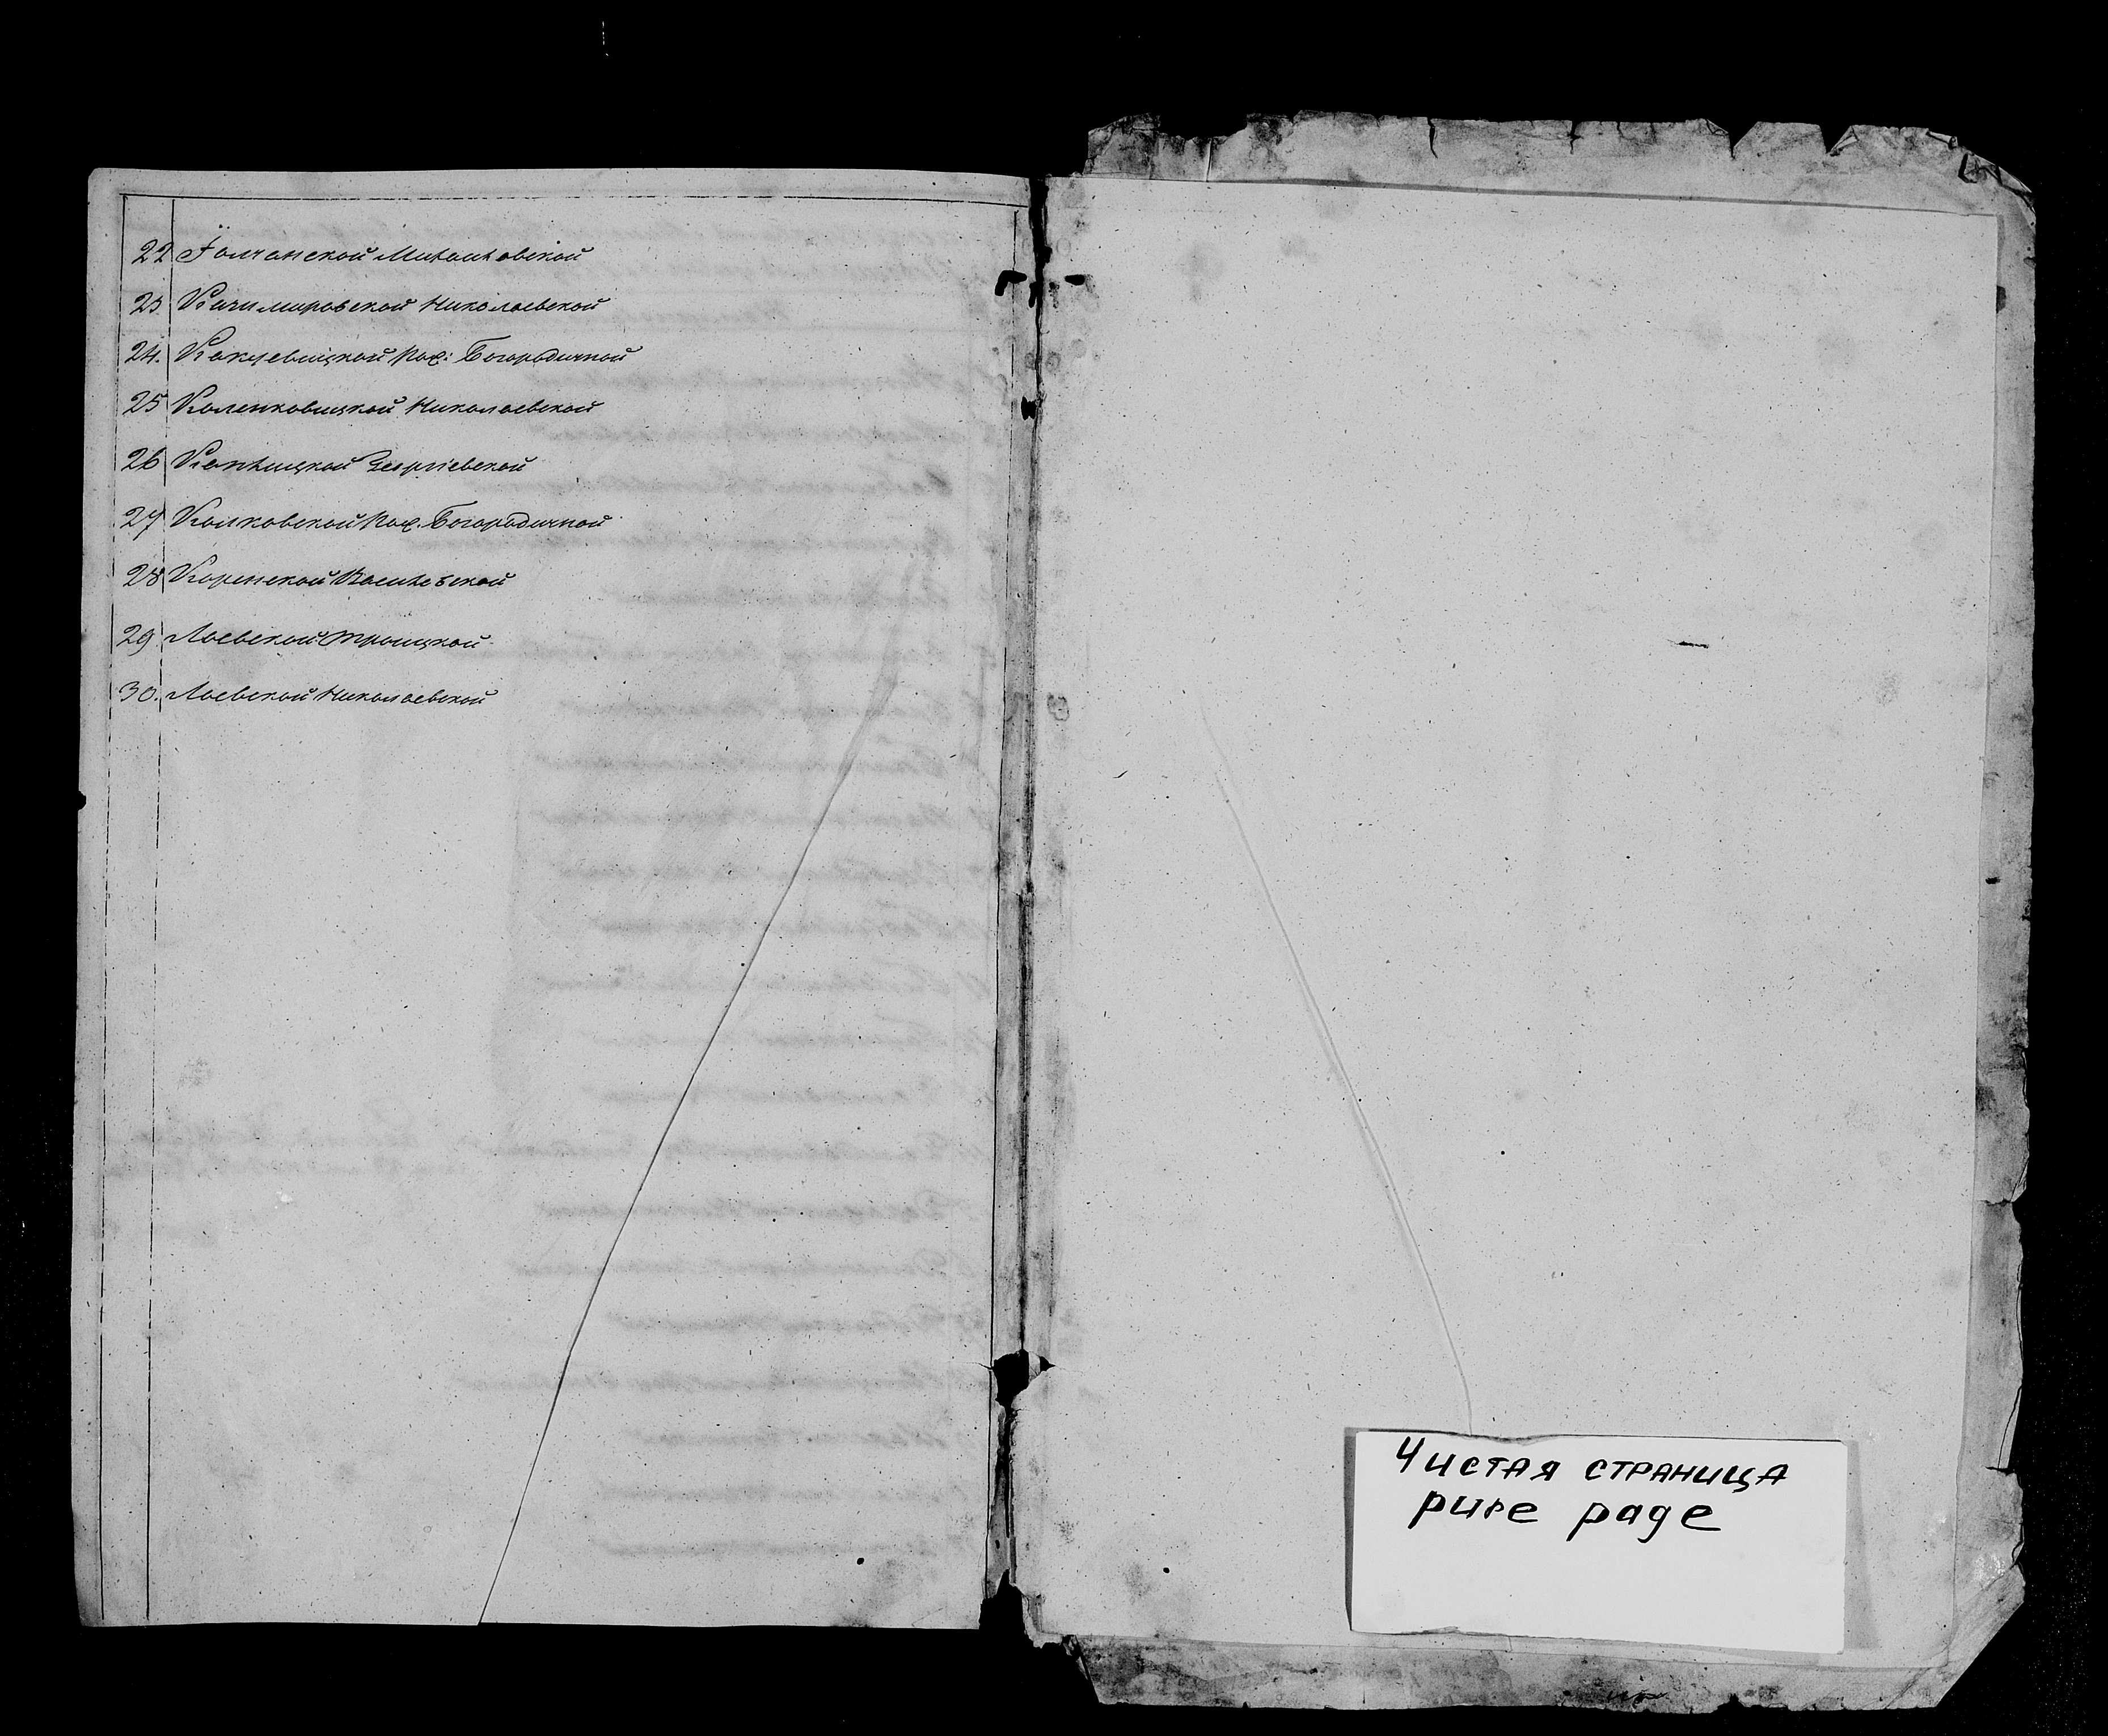 22 Їолчанской Михаиловской
23 Казимировской Николаевской
24. Какуевицкой Рож: Богородичной
25 Коленковицкой Николаевской
26 Георгіевской
27 Колковской Рож. Богородичной
28 Коренской Васильевской
29 Лоевской Троицкой
30. Лоевской Николаевской
Чистая страница
pure page